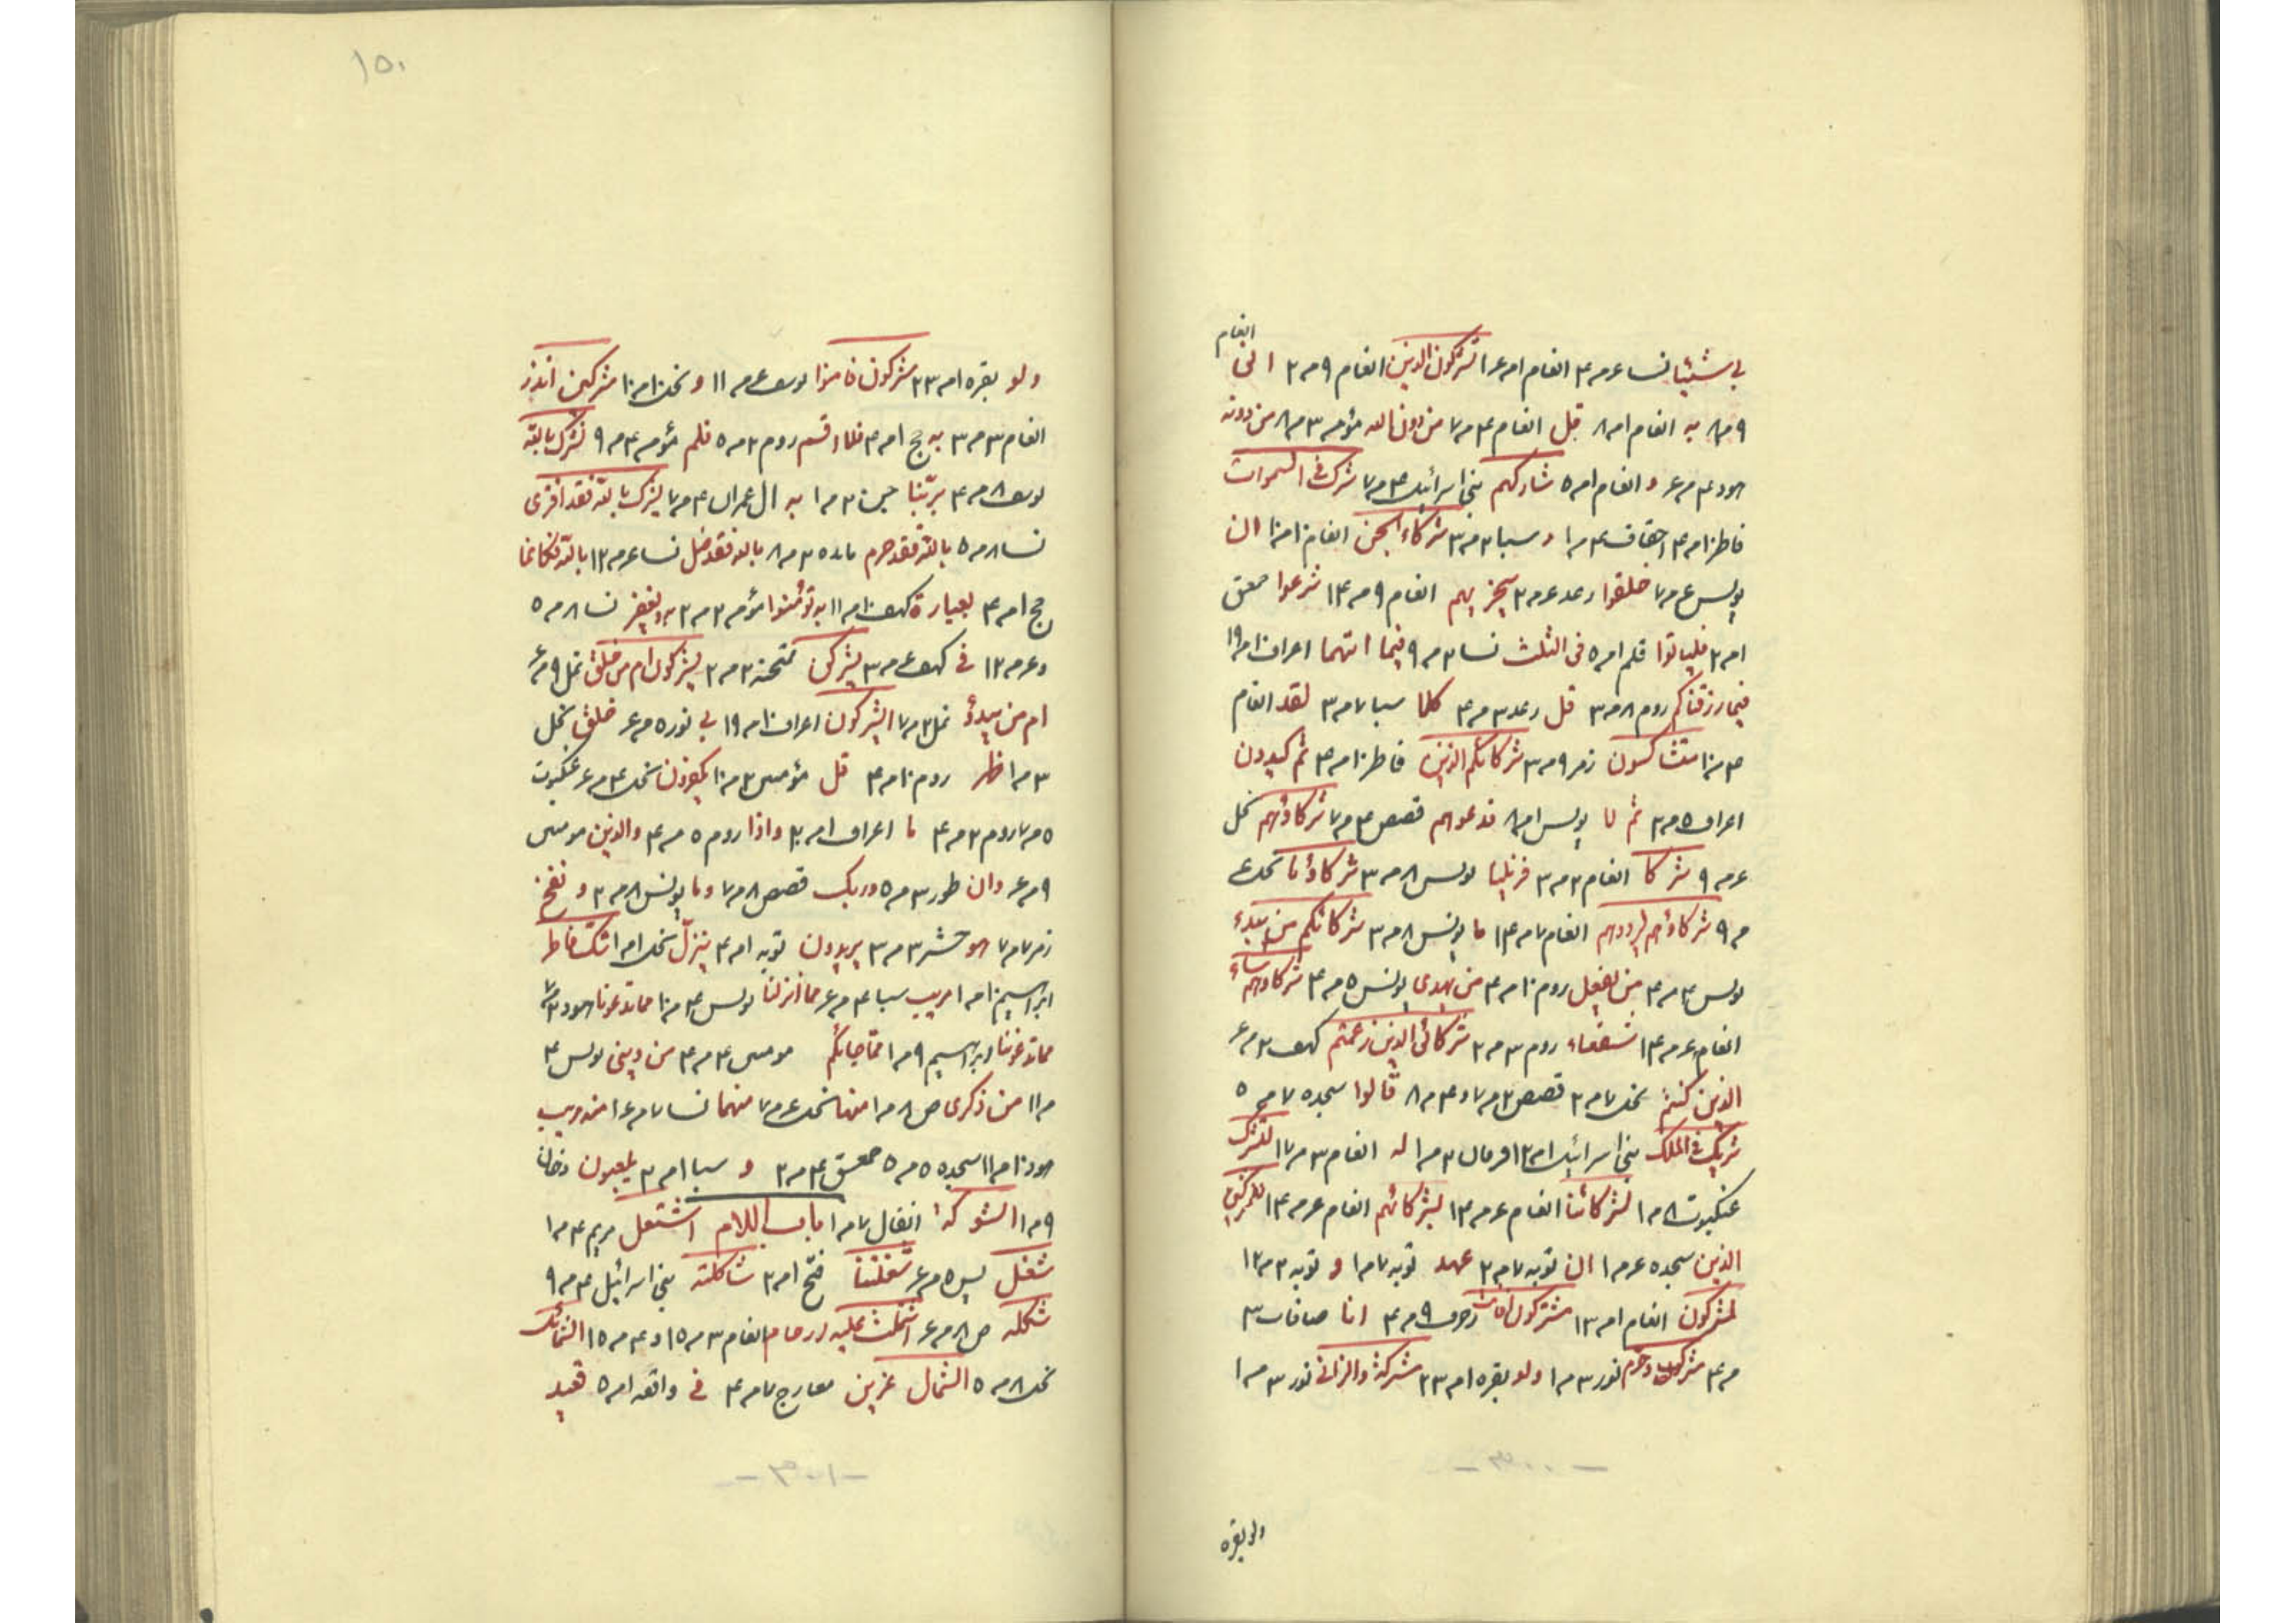 انعام
بی شیئا نسا ۶ مر ۳ انعام امر ۶۱ تشرکون الذین انعام ۹ مر ۲ انی
۹ مر ۸ به انعام امر ۸ قل انعام ۴ مر ۷ من دون الله مؤمر ۳ مر ۸ من دونه
هود ۴ مر ۶ و انعام امر ۵ شارکهم بنی اسرائیل ۴ مر ۷ شرک فی السموات
فاطر ۱۰ مر ۴ احقاف ۴ مر ۱ و سبا ۲ مر ۳ شرکاء الجن انعام ۱۰ مر ۱۰ ان
یونس ۶ مر ۷ خلقوا رعد ۶ مر ۲ سیجزیهم انعام ۹ مر ۱۴ شرعوا حمعق
امر ۲ فلیاتوا قلم امر ۵ فی الثلث نسا ۲ مر ۹ فیما اتهما اعراف ۱۰ مر ۱۹
فیما رزقناکم روم ۸ مر ۳ قل رعد ۳ مر ۴ کلا سبا ۷ مر ۳ لقد انعام
۳ مر ۱۰ متشاکسون زمر ۹ مر ۳ شرکائکم الذین فاطر ۱۰ مر ۴ ثم کیدون
اعراف ۵ مر ۳ ثم لا یونس امر ۸ فدعوهم قصص ۴ مر ۷ شرکاؤهم نحل
۶ مر ۹ شرکا انعام ۲ مر ۳ فزیلنا یونس ۸ مر ۳ شرکاؤنا نحل ۶
مر ۹ شرکاؤهم لیردوهم انعام ۷ مر ۱۴ ما یونس ۸ مر ۳ شرکائکم من یبدء
یونس ۴ مر ۴ من یفعل روم ۱۰ مر ۴ من یهدی یونس ۵ مر ۴ شرکاؤهم ساء
انعام ۶ مر ۱۴ شفعاء روم ۳ مر ۲ شرکائی الذین زعمتم کهف ۲ مر ۶
الذین کنتم نحل ۷ مر ۲ قصص ۲ مر ۷ و ۴ مر ۸ قالوا سجده ۷ مر ۵
شریک فی الملک بنی اسرائیل امر ۱۲ فرقان ۲ مر ۱ له انعام ۳ مر ۱۷ لتشرک
عنکبوت ۸ مر ۱ لشرکائنا انعام ۶ مر ۱۴ لشرکائهم انعام ۶ مر ۱۴ للمشرکین
الذین سجده ۶ مر ۱ ان توبه ۷ مر ۲ عهد توبه ۷ مر ۱ و توبه ۲ مر ۱۲
لمشرکون انعام امر ۱۳ مشترکون زخرف ۹ مر ۴ انا صافات ۳
مر ۴ مشرک وحرم نور ۳ مر ۱ ولو بقره امر ۲۳ مشرکة والزانی نور ۳ مر ۱
- ۳۰۰ -
ولو بقره
۱۵۰
ولو بقره امر ۲۳ مشرکون فامنوا یوسف ۶ مر ۱۱ و نحل ۱۰ مر ۱۰ مشرکین انذر
انعام ۳ مر ۳ به حج امر ۴ فلا اقسم روم ۲ مر ۵ فلم مؤمر ۴ مر ۹ نشرک بالله
یوسف ۸ مر ۴ بربنا جن ۲ مر ۱ به ال عمران ۴ مر ۷ یشرک بالله فقد افتری
نسا ۸ مر ۵ بالله فقد حرم مائده ۲ مر ۸ بالله فقد ضل نسا ۶ مر ۱۲ بالله فکانما
حج امر ۴ بعبادة کهف ۱۰ مر ۱۱ به تؤمنوا مؤمر ۲ مر ۲ به ویغفر نسا ۸ مر ۵
و ۶ مر ۱۲ فی کهف ۶ مر ۳ یشرکن ممتحنه ۲ مر ۲ یشرکون ام من خلق نمل ۹ مر ۶
ام من یبدؤ نمل ۲ مر ۷ ایشرکون اعراف ۱۰ مر ۱۹ بی نور ۵ مر ۶ خلق نحل
۳ مر ۱ ظهر روم ۱۰ مر ۴ قل مؤمنین ۲ مر ۱۰ لیکفرون نحل ۴ مر ۶ عنکبوت
۵ مر ۷ روم ۲ مر ۴ ما اعراف امر ۳ واذا روم ۵ مر ۴ والذین مومنین
۹ مر ۶ وان طور ۳ مر ۵ وربک قصص ۸ مر ۷ وما یونس ۸ مر ۲ و نفخ
زمر ۷ مر ۷ هو حشر ۳ مر ۳ یریدون توبه امر ۴ ینزل نحل امر ۱ شک فاطر
ابراهیم ۱۰ مر ۱ مریب سبا ۴ مر ۶ مما انزلنا یونس ۴ مر ۱۰ مما تدعونا هود ۲ مر ۷
مما تدعوننا ابراهیم ۹ مر ۱ مما جائکم مومنین ۴ مر ۴ من دینی یونس ۴
مر ۱۱ من ذکری ص ۸ مر ۱ منها نحل ۶ مر ۷ منهما نسا ۷ مر ۶۱ منه مریب
هود ۱۰ مر ۱۱ سجده ۵ مر ۵ حمعسق ۴ مر ۲ و سبا امر ۳ یلعبون دخان
۹ مر ۱ الشوکة انفال ۷ مر ۱ باب اللام اشتعل مریم ۴ مر ۱
شغل یس ۵ مر ۶ شغلتنا فتح امر ۲ شاکلته بنی اسرائیل ۴ مر ۹
شکله ص ۸ مر ۶ اشتملت علیه ارحام انعام ۳ مر ۱۵ و ۴ مر ۱۵ الشمائل
نحل ۸ مر ۵ الشمال عزین معارج ۷ مر ۴ فی واقعه امر ۵ قعید
- ۳۰۱ -